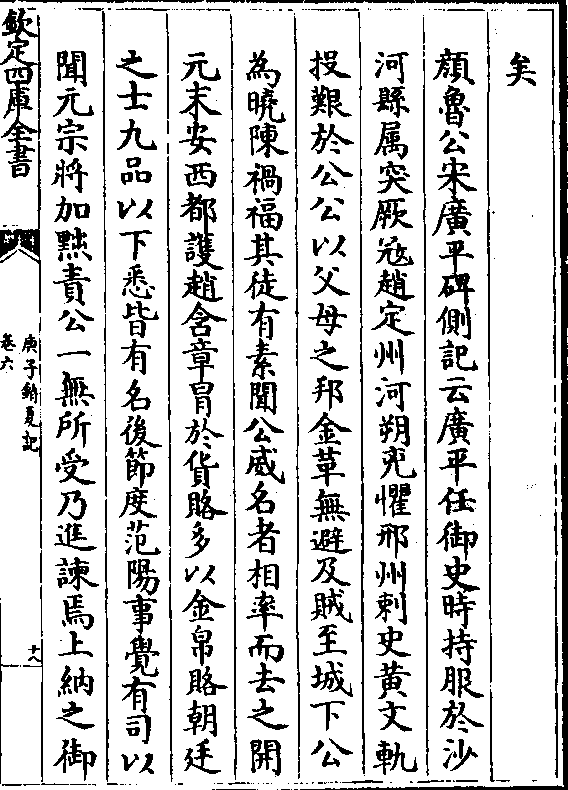 矣
顔魯公宋廣平碑側記云廣平任御史時持服於沙
河縣属突厥寇趙定州河朔兇懼邢州刺史黄文軌
投艱於公公以父母之邦金革無避及賊至城下公
為曉陳禍福其徒有素聞公威名者相率而去之開
元末安西都護趙含章冒於貨賂多以金帛賂朝廷
之士九品以下悉皆有名後節度范陽事覺有司以
聞元宗將加黜責公一無所受乃進諫焉上納之御
欽定四庫全書
庚子銷夏記
卷六
十八